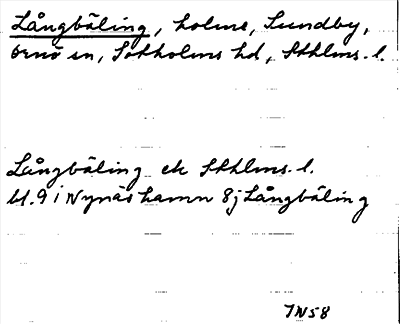 Långbäling, holme, Sundby,
Ornö sn, Sotholms hd, Sthlms. l.
Långbäling ek Sthlms. l.
bl. 9 i Nynäshamn 8j Långbäling
IN58